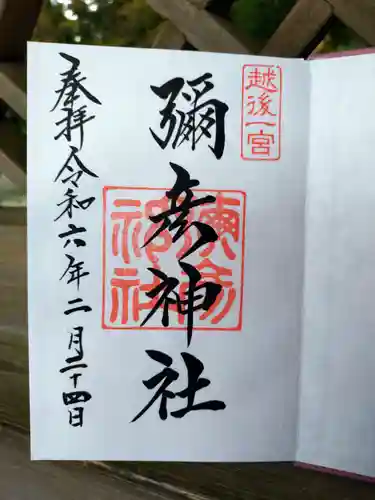 越後一宮
彌彦神社
奉拝 令和六年二月二十四日
彌彦神社